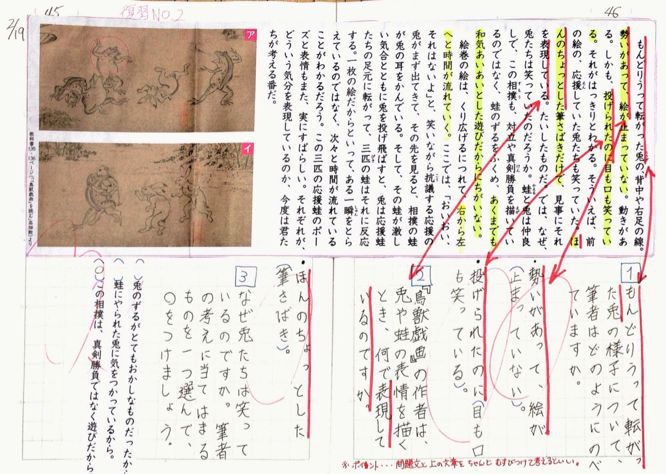 46
もんどりうって転がった兎の背中や右足の線。
勢いがあって、絵が止まっていない。動きがあ
る。しかも、投げられたのに目も口も笑ってい
る。それがはっきりとわかる。そういえば、前
の絵の、応援していた兎たちも笑っていた。ほ
んのちょっとした筆さばきだけで、見事にそれ
を表現している。たいしたものだ。では、なぜ、
兎たちは笑っていたのだろうか。蛙と兎は仲良
しで、この相撲も、対立や真剣勝負を描いてい
るのではなく、蛙のずるをふくめ、あくまでも
和気あいあいとした遊びだからにちがいない。
絵巻の絵は、くり広げるにつれて、右から左
へと時間が流れていく。ここでは、「おいおい、
それはないよ」と、笑いながら抗議する応援の
兎がまず出てきて、その先を見ると、相撲の蛙
が兎の耳をかんでいる。そして、その蛙が激し
い気合とともに兎を投げ飛ばすと、兎は応援蛙
たちの足元に転がって、三匹の蛙はそれに反応
する。一枚の絵だからといってある一瞬をとら
えているのではなく、次々と時間が流れている
ことがわかるだろう。この三匹の応援蛙のポー
ズと表情もまた、実にすばらしい。それぞれが、
どういう気分を表現しているのか、今度は君た
ちが考える番だ。
45
復習NO.2
2/19
ア
イ
1
もんどりうって転がっ
た兎の様子について
筆者はどのようにのべ
ていますか。
・勢いがあって、絵が
(止まっていない)。
・投げられたのに(目も口
も笑っている)。
2
『鳥獣戯画』の作者は、
兎や蛙の表情を描く
とき、何で表現して
いるのですか。
・ほんのちょっとした
(筆さばき)。
3
なぜ兎たちは笑って
いるのですか。筆者
の考えに当てはまる
ものを一つ選んで、
○をつけましょう。
( )兎のずるがとてもおかしなものだったから。
( )蛙にやられた兎に気をつかっているから。
(○)この相撲は、真剣勝負ではなく遊びだから
※ポイント…問題文と上の文章をちゃんとむすびつけて考えるといい。